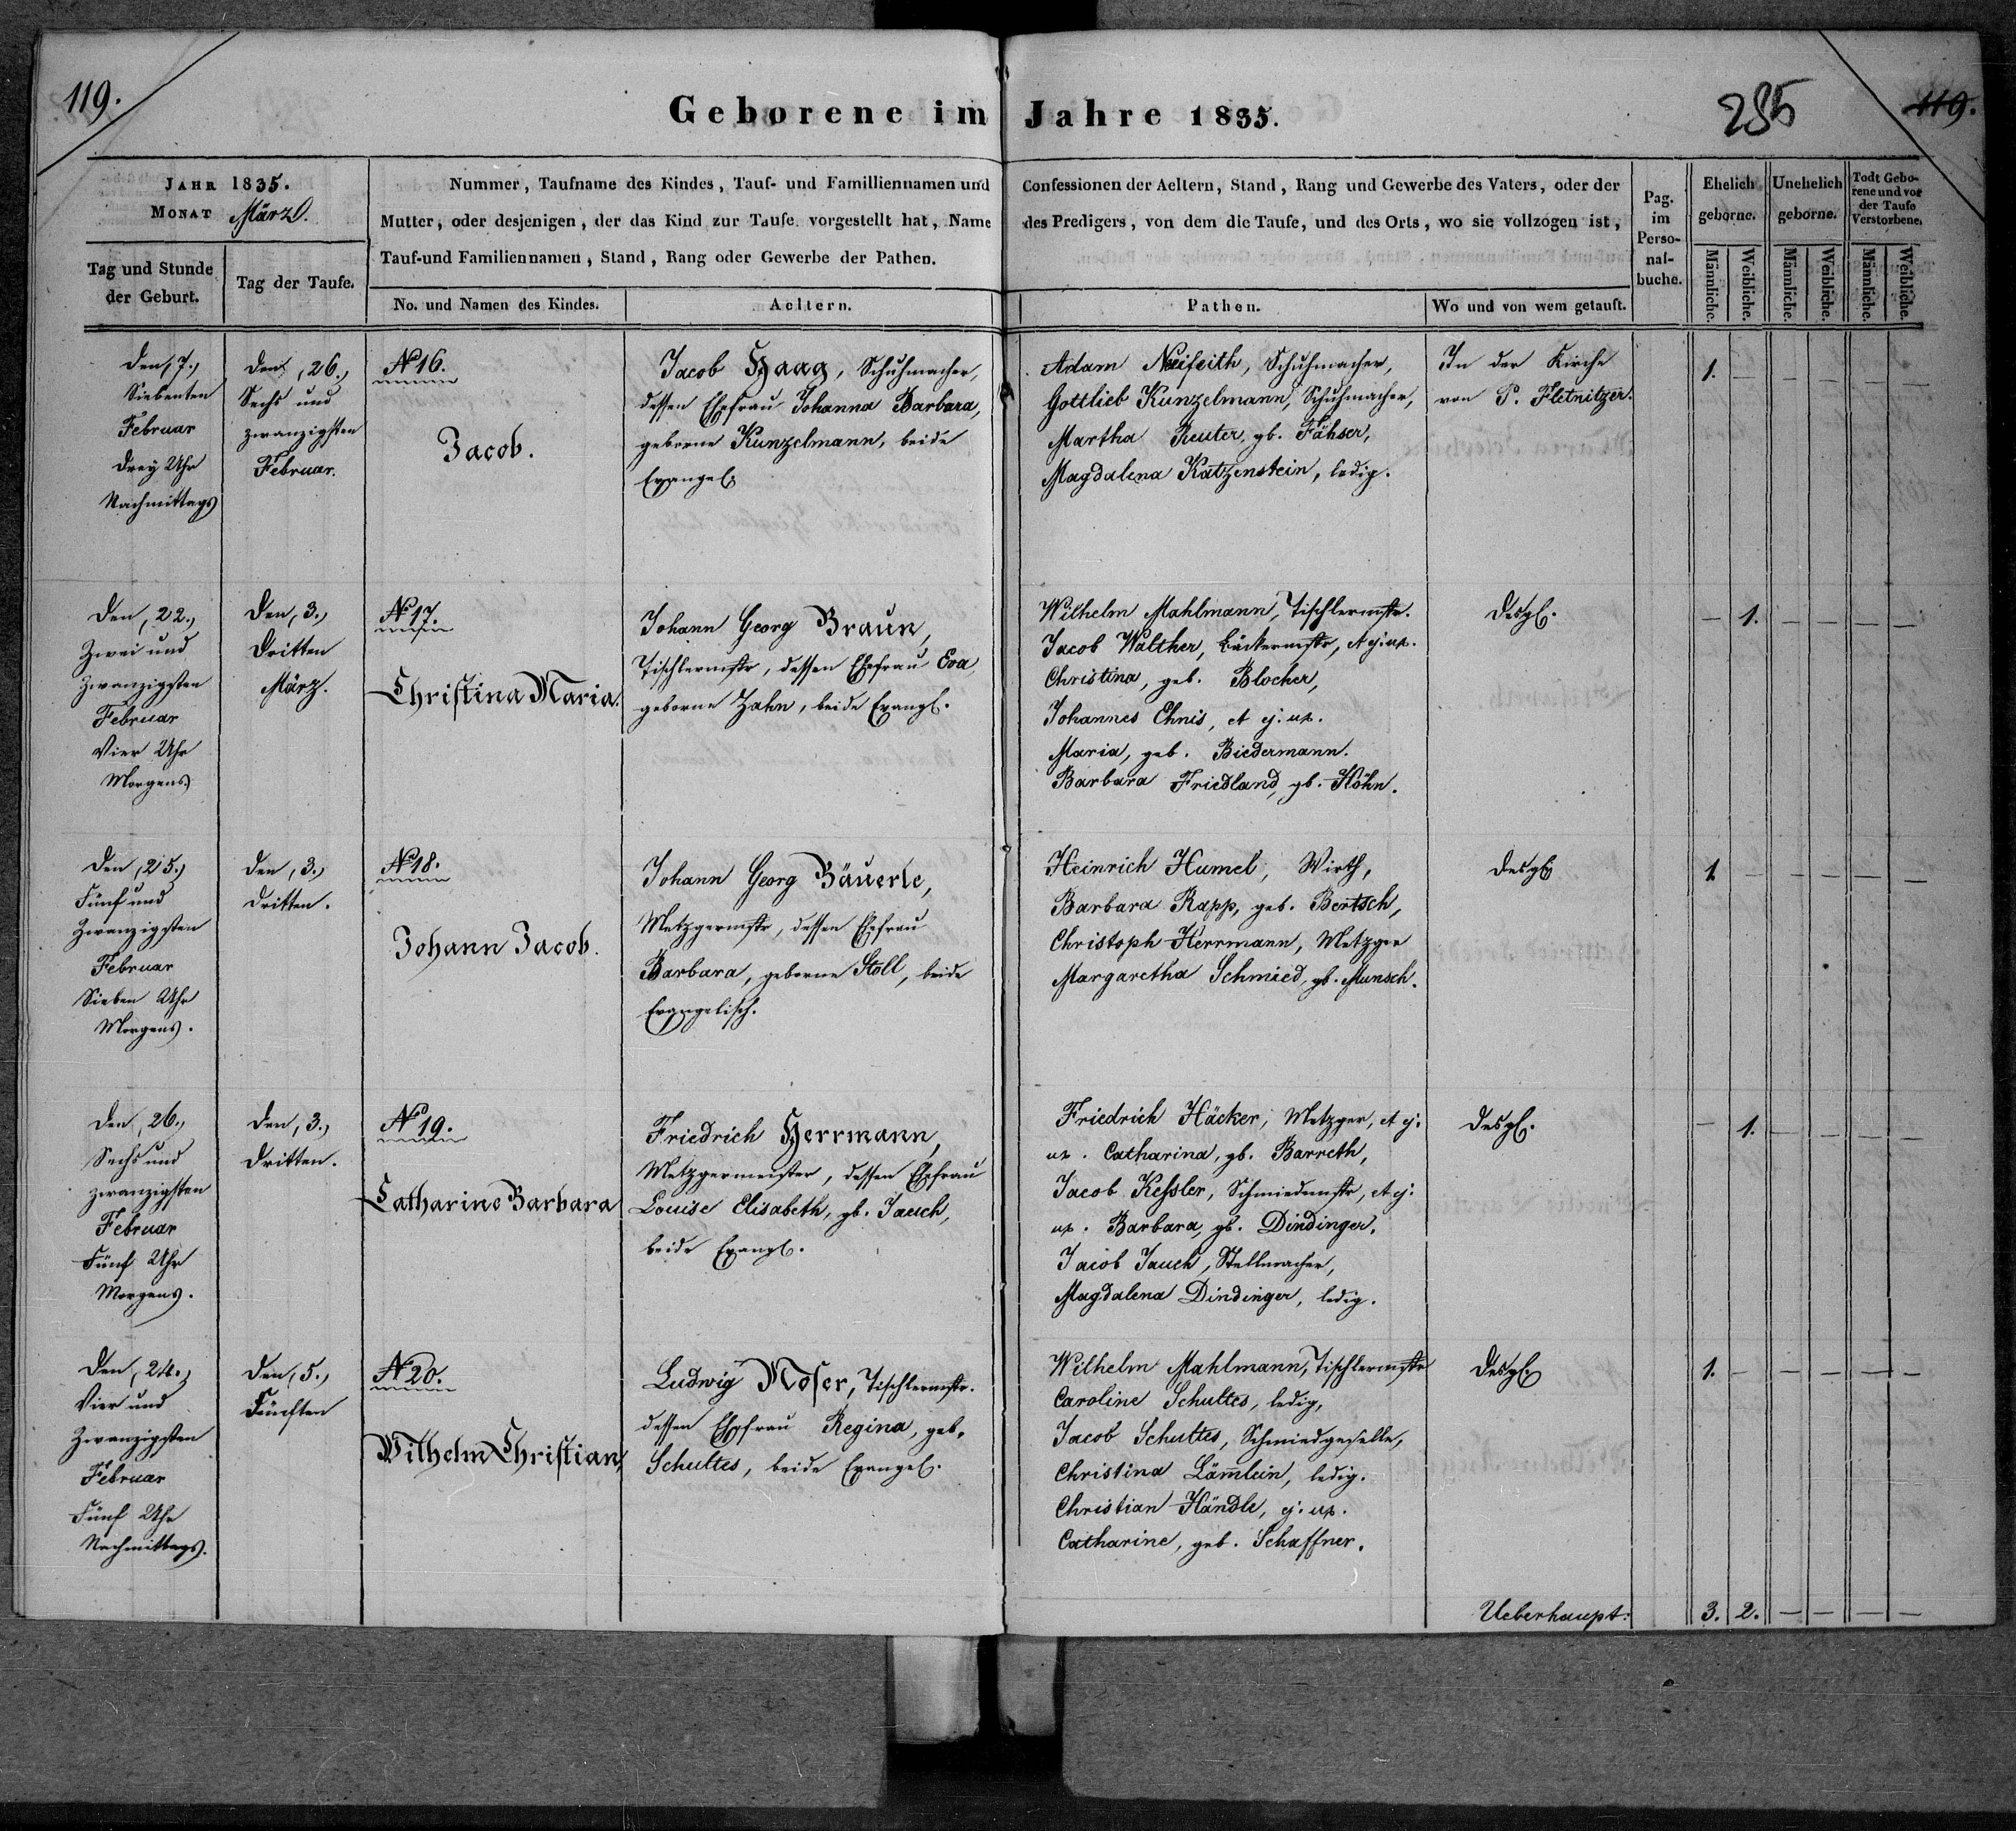 119.
Geborene im Jahre 1835.
285
119.
JAHR 1835.
MONAT März.
Tag und Stunde der Geburt.
Tag der Taufe.
Nummer, Taufname des Kindes, Tauf- und Familliennamen und Confessionen der Aeltern, Stand, Rang und Gewerbe des Vaters, oder der
Mutter, oder desjenigen, der das Kind zur Taufe vorgestellt hat, Name des Predigers, von dem die Taufe, und des Orts, wo sie vollzogen ist,
Tauf-und Familiennamen, Stand, Rang oder Gewerbe der Pathen.
No. und Namen des Kindes.
Aeltern.
Pathen.
Wo und von wem getauft.
Pag. im Perso-nal-buche.
Ehelich geborne.
Unehelich geborne.
Todt Gebo-rene und vor der Taufe Verstorbene.
Männliche.
Weibliche.
Männliche.
Weibliche.
Männliche.
Weibliche.
Den, 7.,
Siebenten
Februar
Drey Uhr
Nachmittags
Den, 26.,
Sechs und
zwanzigsten
Februar.
No 16.
Jacob.
Jacob Haag, Schuhmacher,
dessen Ehefrau Johanna Barbara,
geborne Kunzelmann, beide
Evangel.
Adam Neifeith, Schuhmacher,
Gottlieb Kunzelmann, Schuhmacher,
Martha Reuter, gb. Fähser,
Magdalena Katzenstein, ledig.
In der Kirche
von P. Fletnitzer.
1. — — — — —
Den, 22.,
Zwei und
Zwanzigsten
Februar
Vier Uhr
Morgens
Den, 3.,
Dritten
März.
No 17.
Christina Maria.
Johann Georg Braun,
Tischlermstr, dessen Ehefrau Eva
geborne Zahn, beide Evangl.
Wilhelm Mahlmann, Tischlermstr.
Jacob Walther, Bäckermstr, et ej: ux.
Christina, geb. Blocher,
Johannes Ehnis, et ej: ux.
Maria, geb. Biedermann.
Barbara Friedland, gb. Höhn.
Desgl.
— 1. — — — —
Den, 25.,
Fünf und
Zwanzigsten
Februar
Sieben Uhr
Morgens.
Den, 3.,
Dritten.
No 18.
Johann Jacob.
Johann Georg Bäuerle,
Metzgermstr, dessen Ehefrau
Barbara, geborne Stoll, beide
Evangelisch.
Heinrich Humel, Wirth,
Barbara Rapp, geb. Bertsch,
Christoph Herrmann, Metzger
Margaretha Schmied, gb. Munsch.
Desgl.
1 — — — — —
Den, 26.,
Sechs und
zwanzigsten
Februar
Fünf Uhr
Morgens.
Den, 3.,
Dritten.
No 19.
Catharine Barbara
Friedrich Herrmann,
Metzgermeister, dessen Ehefrau
Louise Elisabeth, gb. Jauch,
beide Evangl.
Friedrich Häcker, Metzger, et ej:
ux. Catharina, gb. Barreth,
Jacob Kessler, Schmiedemstr, et ej:
ux. Barbara, gb. Dindinger,
Jacob Jauch, Stellmacher,
Magdalena Dindinger, ledig.
Desgl.
— 1. — — — —
Den, 24.,
Vier und
Zwanzigsten
Februar
Fünf Uhr
Nachmittags.
Den, 5.,
Fünften
No 20.
Wilhelm Christian,
Ludwig Moser, Tischlermstr.
dessen Ehefrau Regina, geb.
Schultes, beide Evangel.
Wilhelm Mahlmann, Tischlermstr
Caroline Schultes, ledig,
Jacob Schultes, Schmiedgeselle,
Christina Läm̅lein, ledig.
Christian Händle, ej: ux.
Catharine, geb. Schaffner.
Desgl.
1. — — — — —
Ueberhaupt: 3. 2. — — — —